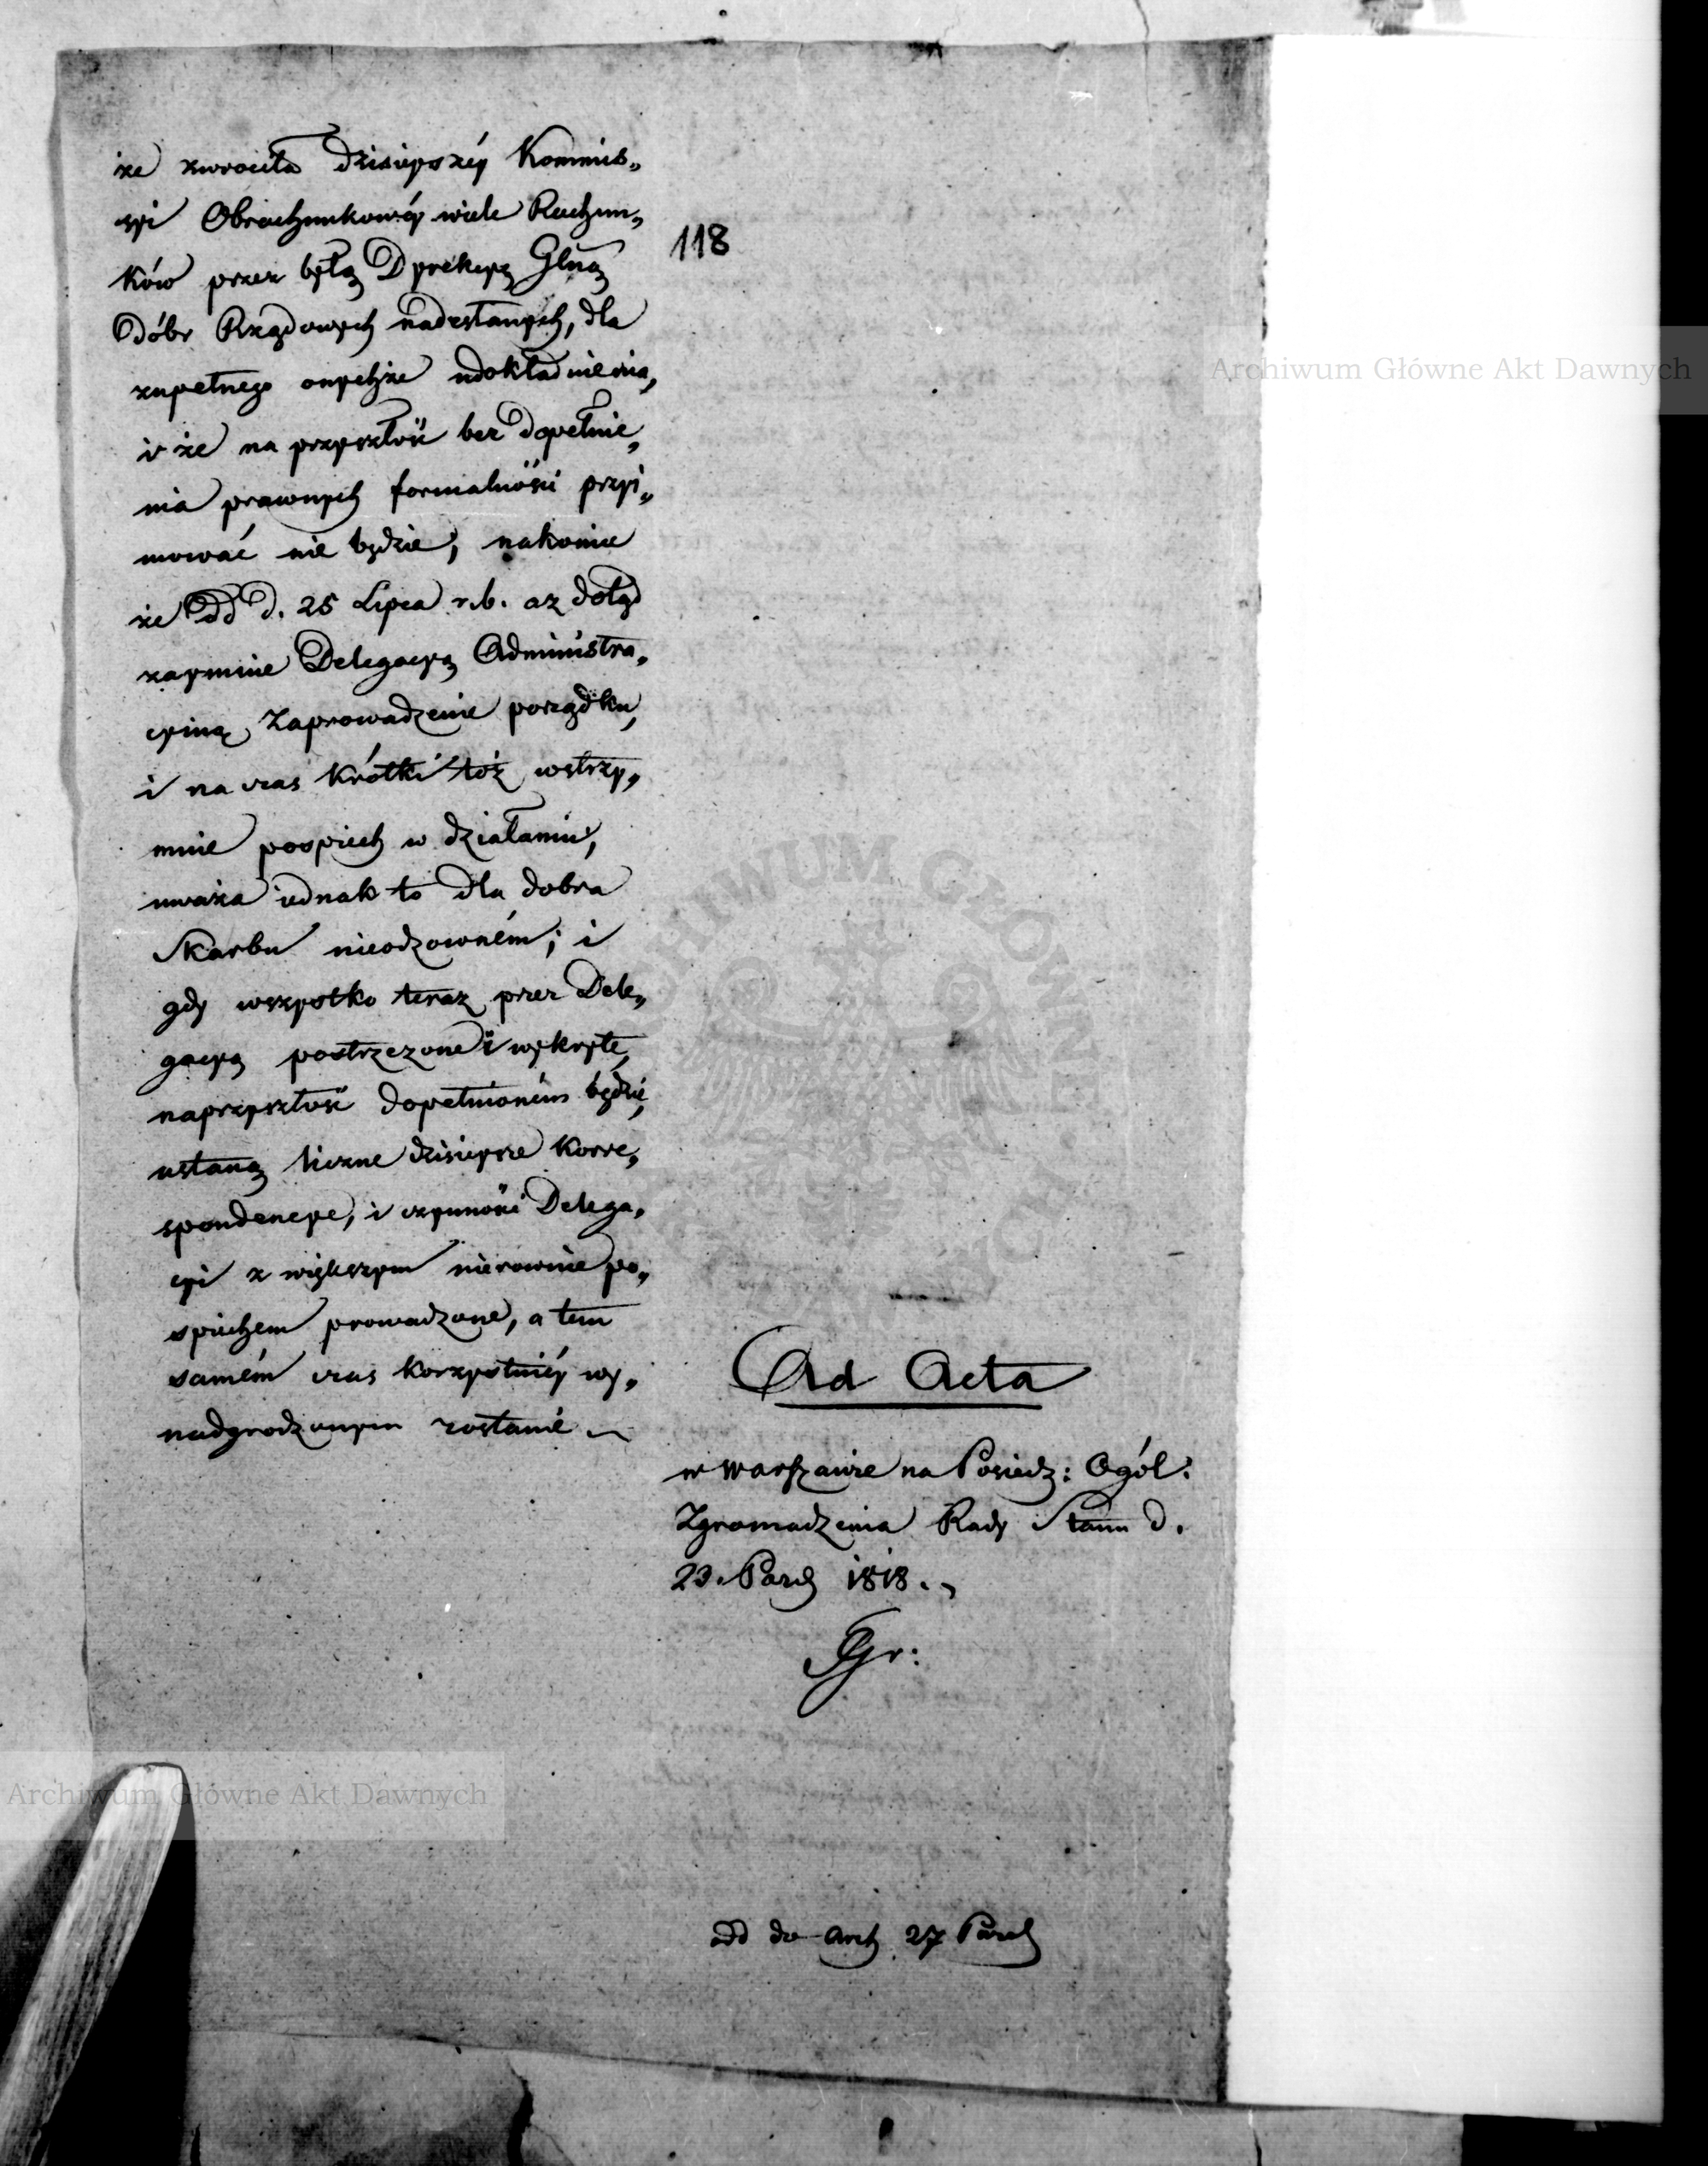 że zwrociła dzisieyszéy Kommis„
syi Obrachunkowéy wiele Rachun„
ków przez byłą Dyrekcyą Glną
Dóbr Rządowych nadesłanych, dla
zupełnego onychże udokładnienia,
i że na przyszłość bez dopełnie„
nia prawnych formalności przyi„
mować nie będzie; nakoniec
że Od d. 25 Lipca r.b. aż dotąd
zaymuie Delegacyą Administra„
cyiną Zaprowadzenie porządku,
i na czas krótki toż wstrzy„
muie pospiech w działaniu,
uważa iednak to dla dobra
Skarbu nieodzowném; i
gdy wszystko teraz przez Dele„
gacyą postrzeżone i wykryte,
naprzyszłość dopełnioném będzie,
ustaną liczne dzisieysze Korre„
spondencye, i czynności Delega„
cyi z większym nierownie po„
spiechem prowadzone, a tém
samém czas korzystniéy wy„
nadgrodzonym zostanie
118
Ad Acta
w Warszawie na Posiedz: Ogól:
Zgromadzenia Rady Stanu d.
23. Paźd 1818.
odd do Arch 27 Paźd
Archiwum Główne Akt Dawnych
Archiwum Główne Akt Dawnych
ARCHIWUM GŁÓWNE AKT DAWNYCH